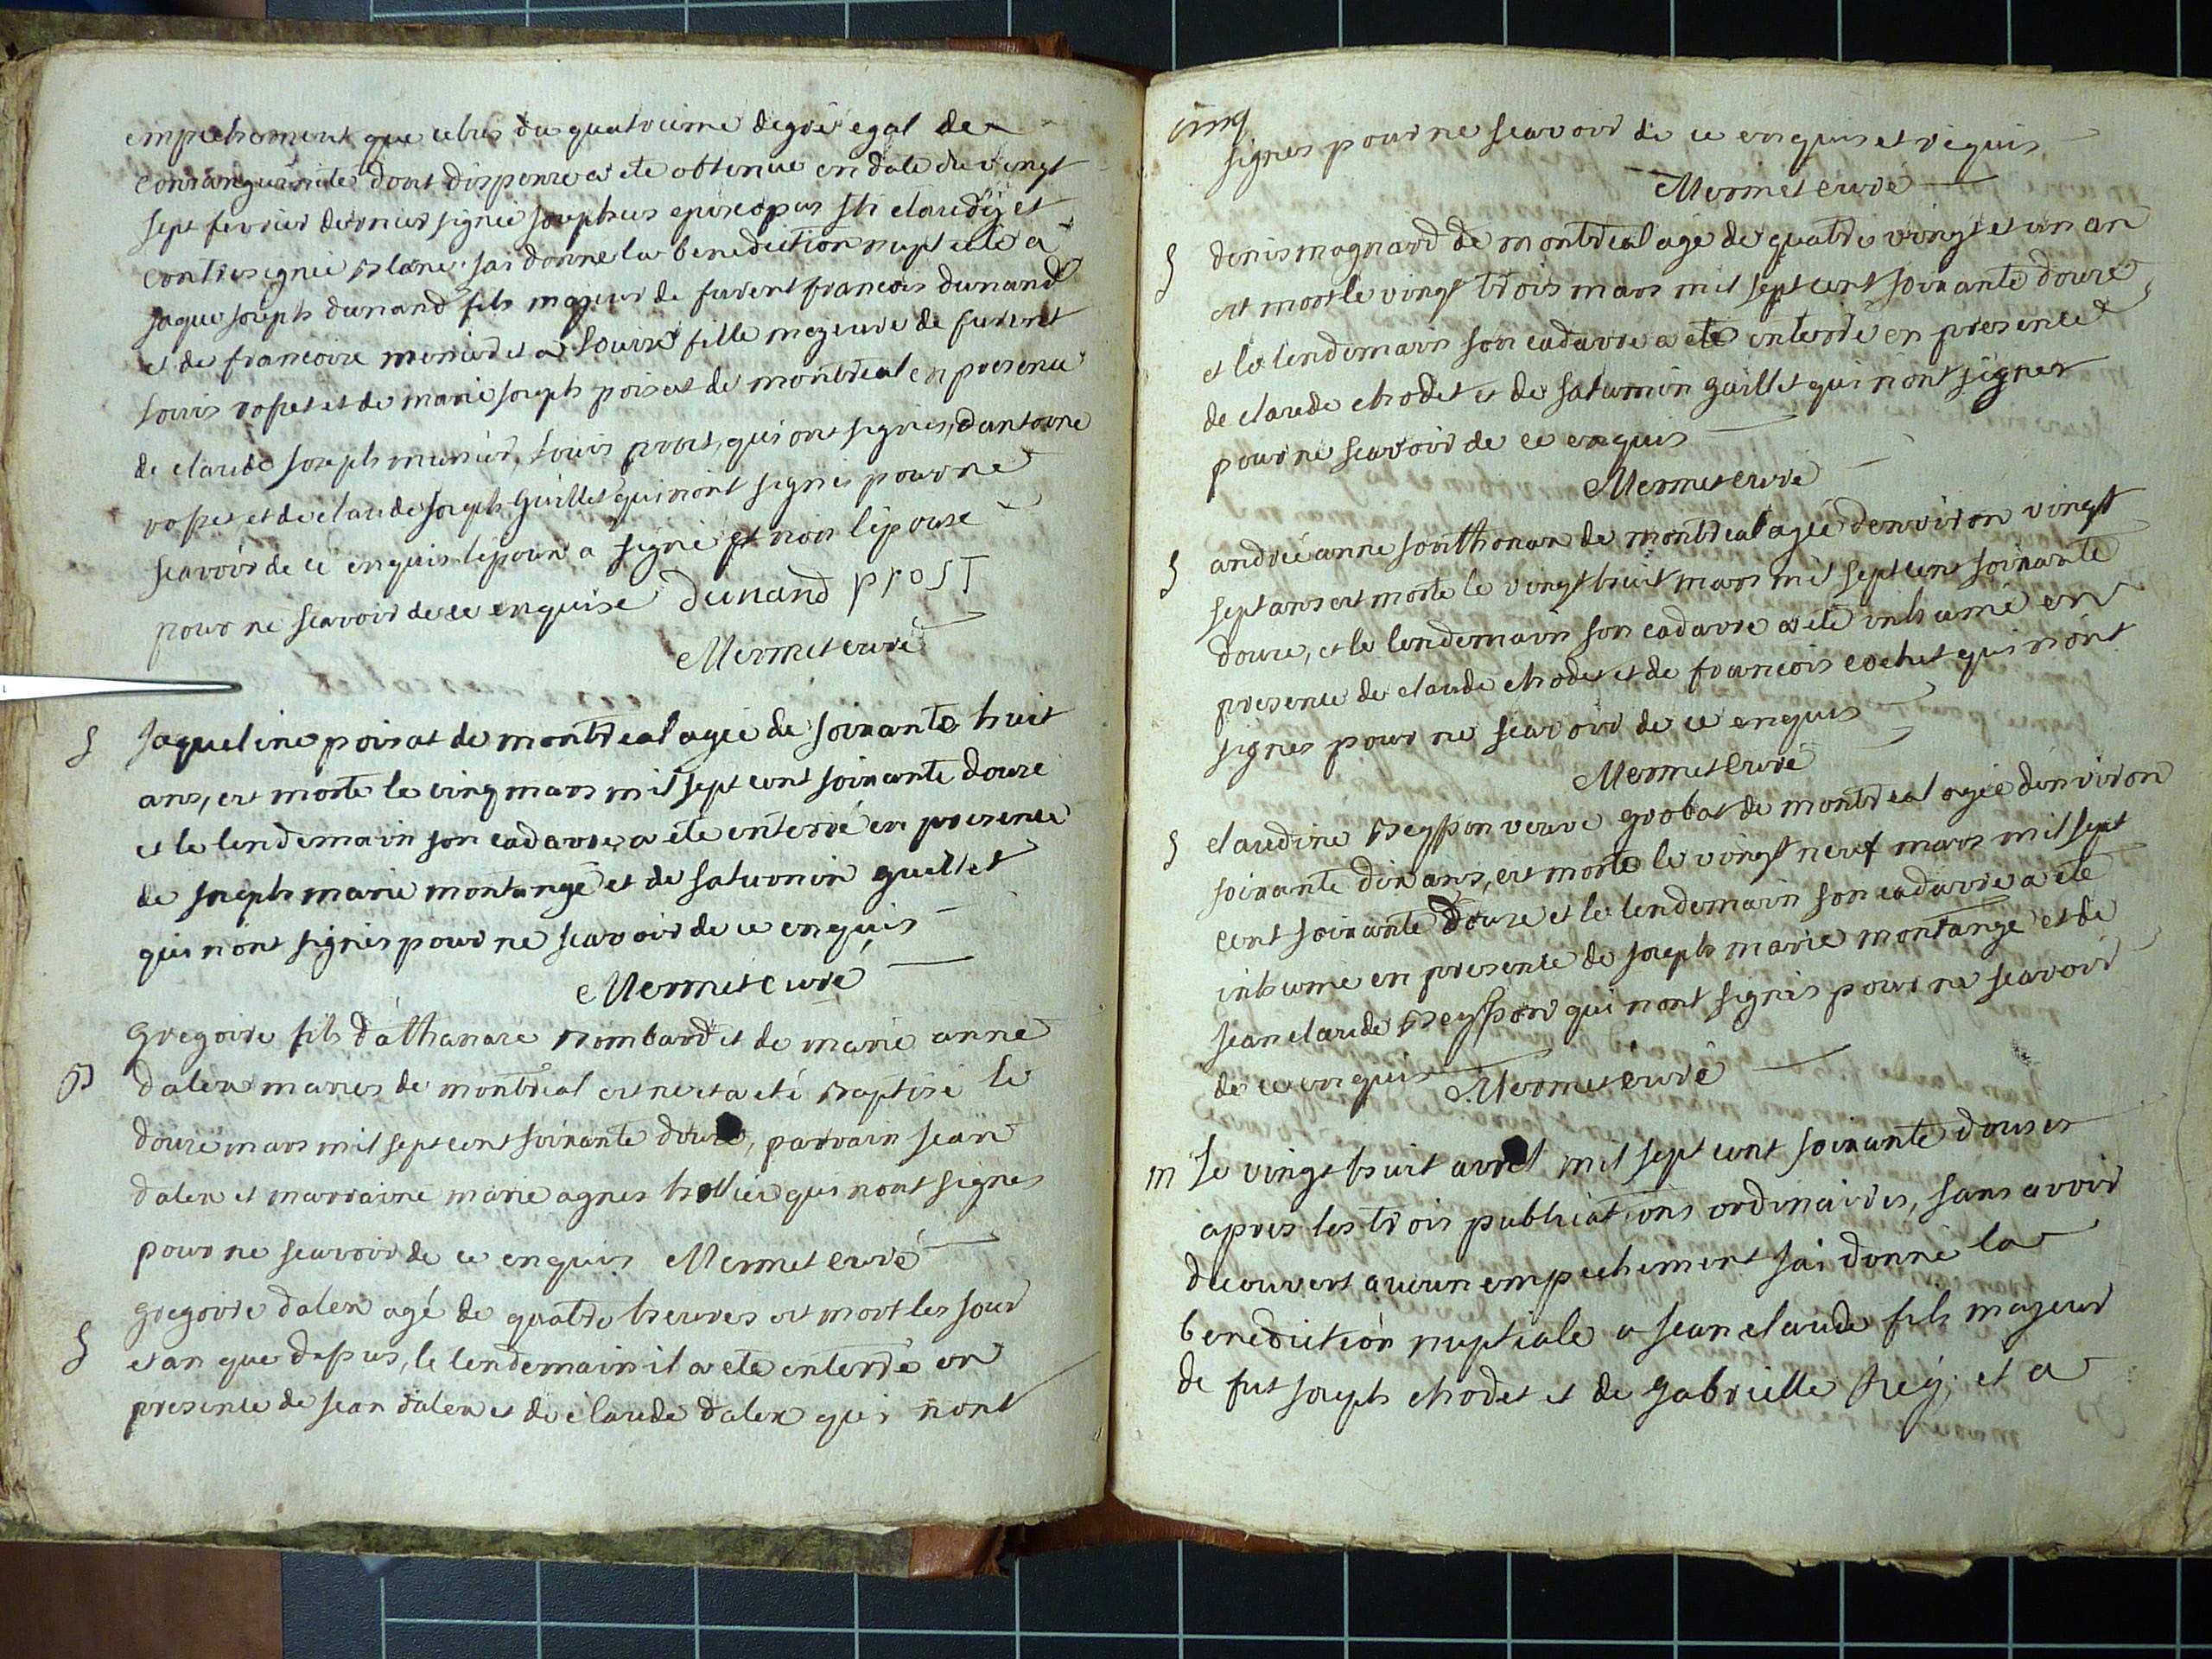 empechement que celui du quatrieme degré egal de
consanguinité dont dispense a ete obtenue en date du vingt
sept fevrier dernier signée josephus episcopus sti claudij et
contresignée blanc. jai donné la benediction nuptiale a
jaque joseph dunand fils majeur de furent francois dunand
et de francoise munier et a louise fille majeure de furent
louis rosset et de marie joseph poisat de montreal en presence
de claude joseph munier, louis prost, qui ont signés, dantoine
rosset et de claude joseph guillet qui nont signés pour ne
scavoir de ce enquis lepoux a signé et non lepouse
pour ne scavoir de ce enquise Dunand prosT
Mermet curé
S jaqueline poisat de montreal agée de soixante huit
ans, est morte le cinq mars mil sept cent soixante douze
et le lendemain son cadavre a été enterré en presence
de joseph marie montange et de saturnin guillet
qui nont signés pour ne scavoir de ce enquis
Mermet curé
gregoire fils dathanase bombard et de marie anne
B dalex maries de montreal est ne et a eté baptisé le
douze mars mil sept cent soixante douze, parrain jean
dalex et marraine marie agnes hollier qui nont signés
pour ne scavoir de ce enquis Mermet curé
gregoire dalex agé de quatre heures est mort les jour
S et an que dessus, le lendemain il a ete enterré en
presence de jean dalex et de claude dalex qui nont
cinq
signés pour ne scavoir de ce enquis et requis
Mermet curé
S denis magnard de montreal agé de quatre vingt et un an
est mort le vingt trois mars mil sept cent soixante douze
et le lendemain son cadavre a eté enterré en presence
de claude chodet et de saturnin guillet qui nont signés
pour ne scavoir de ce enquis
Mermet curé
S andrée anne sonthonax de montreal agée denviron vingt
sept ans est morte le vingt huit mars mil sept cent soixante
douze, et le lendemain son cadavre a eté inhumé en
presence de claude chodet et de francois cochet qui nont
signés pour ne scavoir de ce enquis
Mermet curé
S claudine beysson veuve grobat de montreal agée denviron
soixante dix ans, est morte le vingt neuf mars mil sept
cent soixante douze et le lendemain son cadavre a eté
inhumé en presence de joseph marie montange et de
jean claude beysson qui nont signés pour ne scavoir
de ce enquis Mermet curé
m le vingt huit avril mil sept cent soixante douzes
apres les trois publications ordinaires, sans avoir
decouvert aucun empechement jai donné la
benediction nuptiale a jean claude fils majeur
de fut joseph chodet et de gabrielle et a